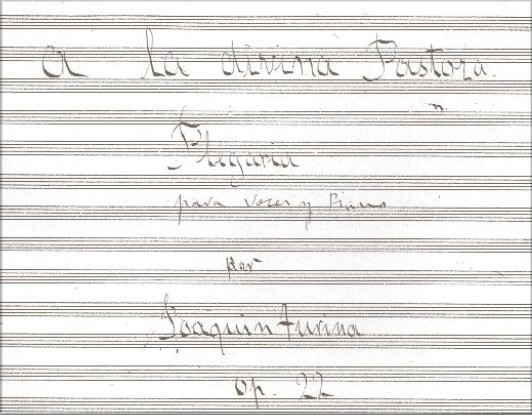 A la divina Pastora.
Plegaria
para voces y Piano
por
Joaquin Turina
op. 22